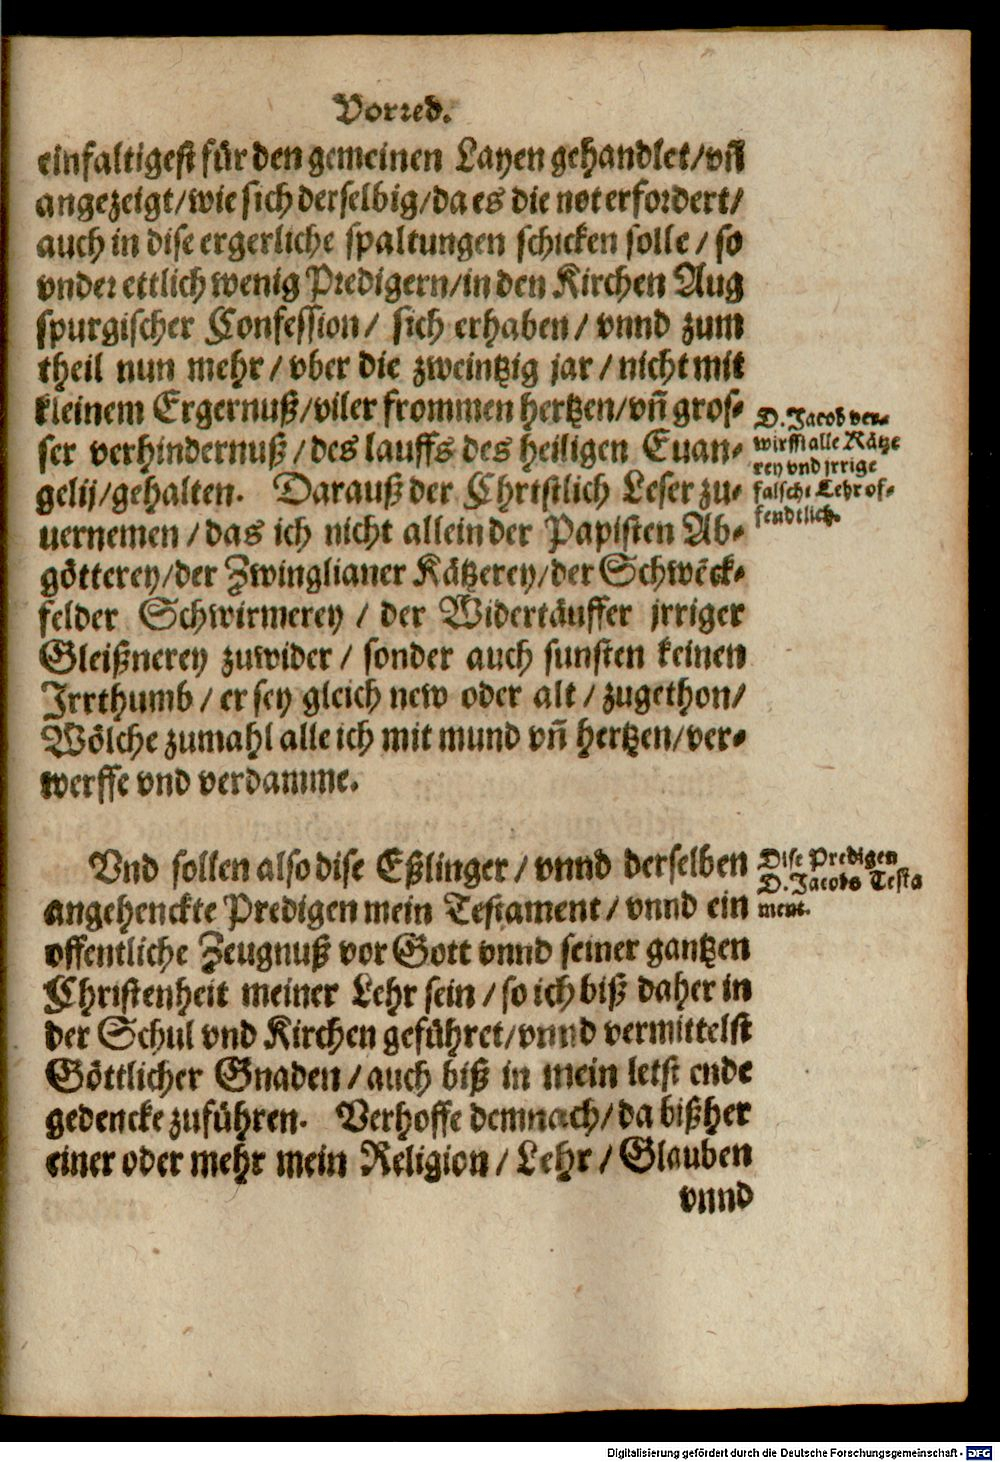 Vorred.
einfaltigest für den gemeinen Layen gehandlet/vñ
angezeigt/wie sich derselbig/da es die not erfordert/
auch in dise ergerliche spaltungen schicken solle/so
vnder ettlich wenig Predigern/in den Kirchen Aug
spurgischer Confession/ sich erhaben/ vnnd zum
theil nun mehr/vber die zweintzig jar/nicht mit
kleinem Ergernuß/viler frommen hertzen/vñ gros-
ser verhindernuß/des lauffs des heiligen Euan-
gelij/gehalten. Darauß der Christlich Leser zu-
uernemen/das ich nicht allein der Papisten Ab-
götterey/der Zwinglianer Kätzerey/der Schwēck-
felder Schwirmerey/ der Widertäuffer jrriger
Gleißnerey zuwider/ sonder auch sunsten keinen
Irrthumb/er sey gleich new oder alt/zugethon/
Wölche zumahl alle ich mit mund vñ hertzen/ver-
werffe vnd verdamme.
D. Jacob ver-
wirfft alle Kätze
rey vnd jrrige
falsche Lehr of-
fendtlich.
Vnd sollen also dise Eßlinger/ vnnd derselben
angehenckte Predigen mein Testament/vnnd ein
offentliche Zeugnuß vor Gott vnnd seiner gantzen
Christenheit meiner Lehr sein/so ich biß daher in
der Schul vnd Kirchen geführet/vnnd vermittelst
Göttlicher Gnaden/auch biß in mein letst ende
gedencke zuführen. Verhoffe demnach/da bißher
einer oder mehr mein Religion/Lehr/Glauben
vnnd
Dise Predigen
D. Jacobs Testa
ment.
Digitalisierung gefördert durch die Deutsche Forschungsgemeinschaft - DFG